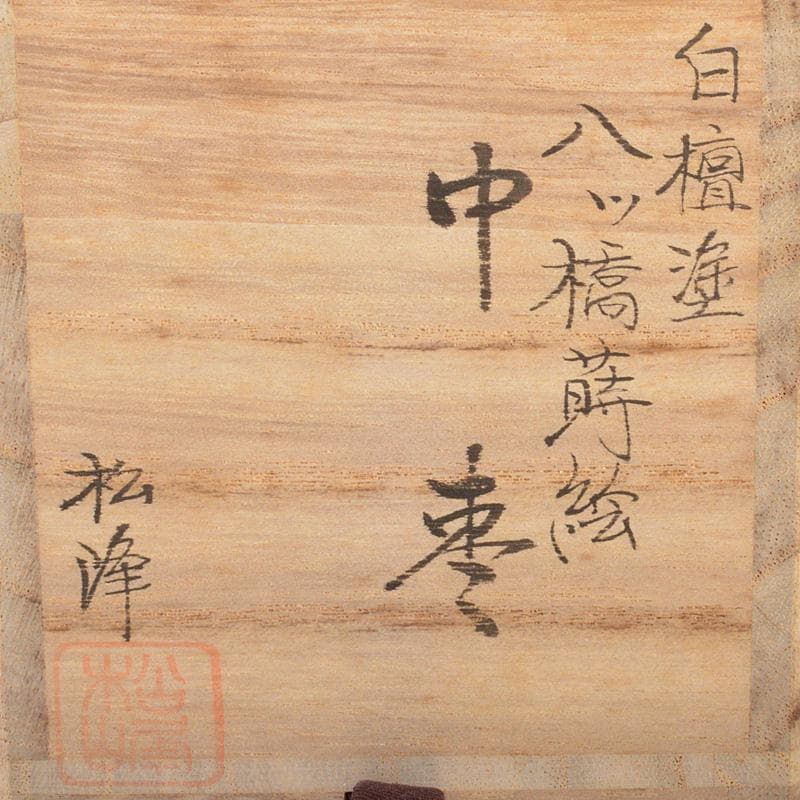 白檀塗
八ッ橋蒔絵
中棗
松峰
松峯